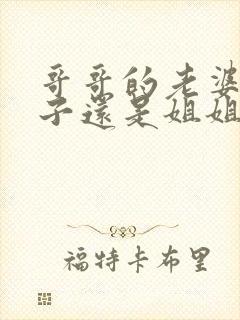 哥哥的老婆
子還是姐姐
福特卡布里